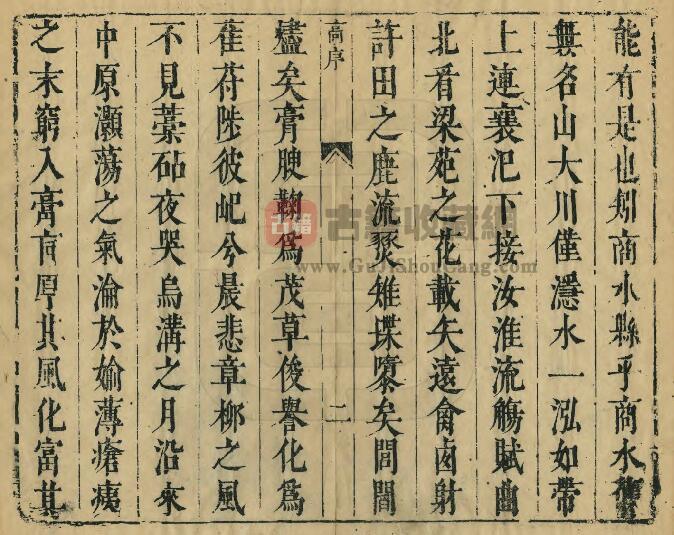 能有是也矧商水縣乎商水舊
無名山大川僅濦水一泓如帶
上連襄汜下接汝淮流觴賦曲
北看梁苑之花載矢遠禽鹵射
許田之鹿流燹雉堞隳矣閭閻
高序 二
燼矣膏腴鞠爲茂草俊譽化爲
萑苻陟彼屺兮晨悲章柳之風
不見藁砧夜哭烏溝之月沿來
中原灝蕩之氣淪於媮薄瘡痍
之末窮入膏肓厚其風化富其
古籍 古籍收藏網
www.GuJiShouCang.com